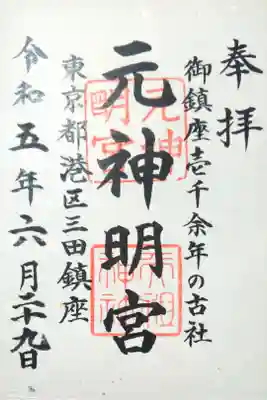 奉拝
御鎮座壱千余年の古社
元神明宮
東京都港区三田鎮座
令和五年六月二十九日